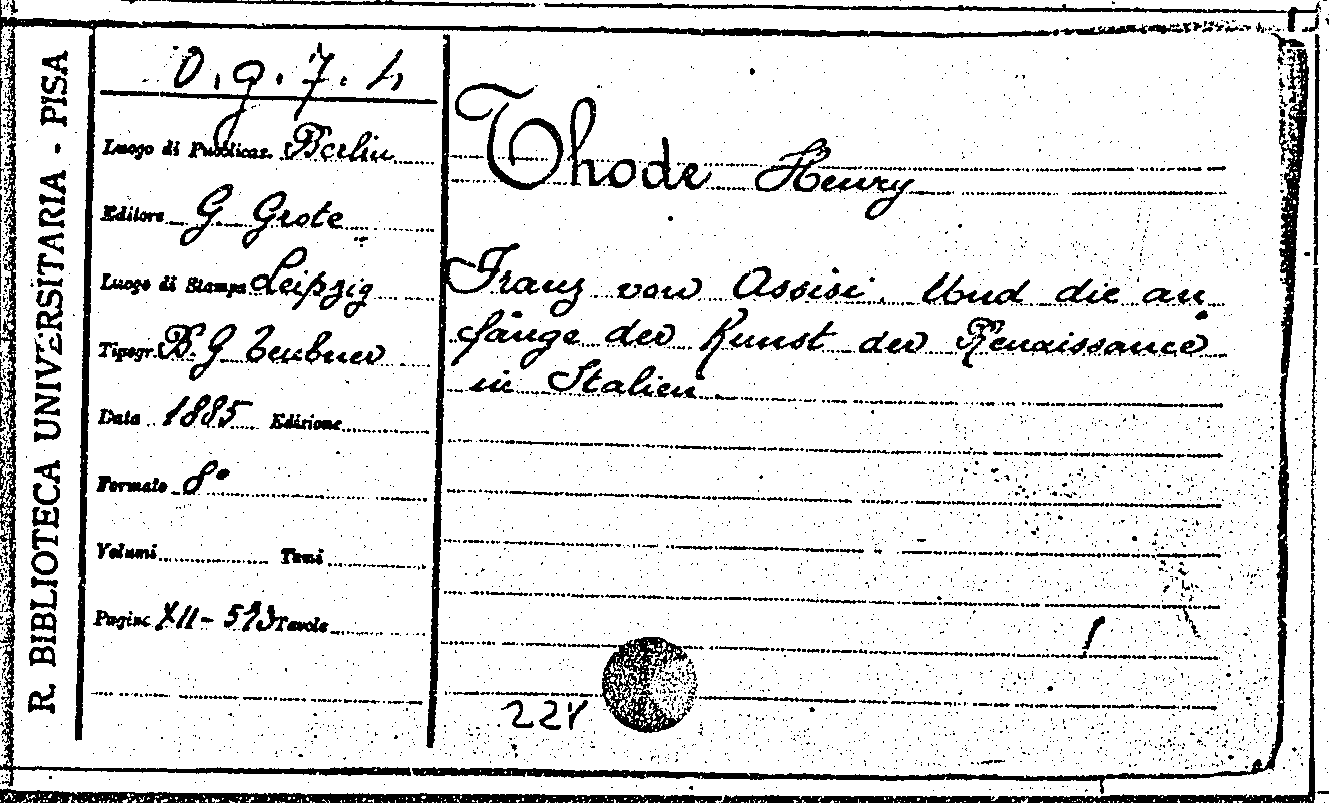 R. BIBLIOTECA UNIVERSITARIA - PISA
O.g.7.4
Luogo di Pubblicaz. Berlin
Editore G Grote
Luogo di Stampa Leipzig
Tipogr. B. G Teubner
Data 1885 Edizione
Formato 8°
Volumi Tomi
Pagine XII - 573 Tavole
Thode Henry
Franz von Assisi. Und die an
fänge der Kunst der Renaissance
in Italien.
224